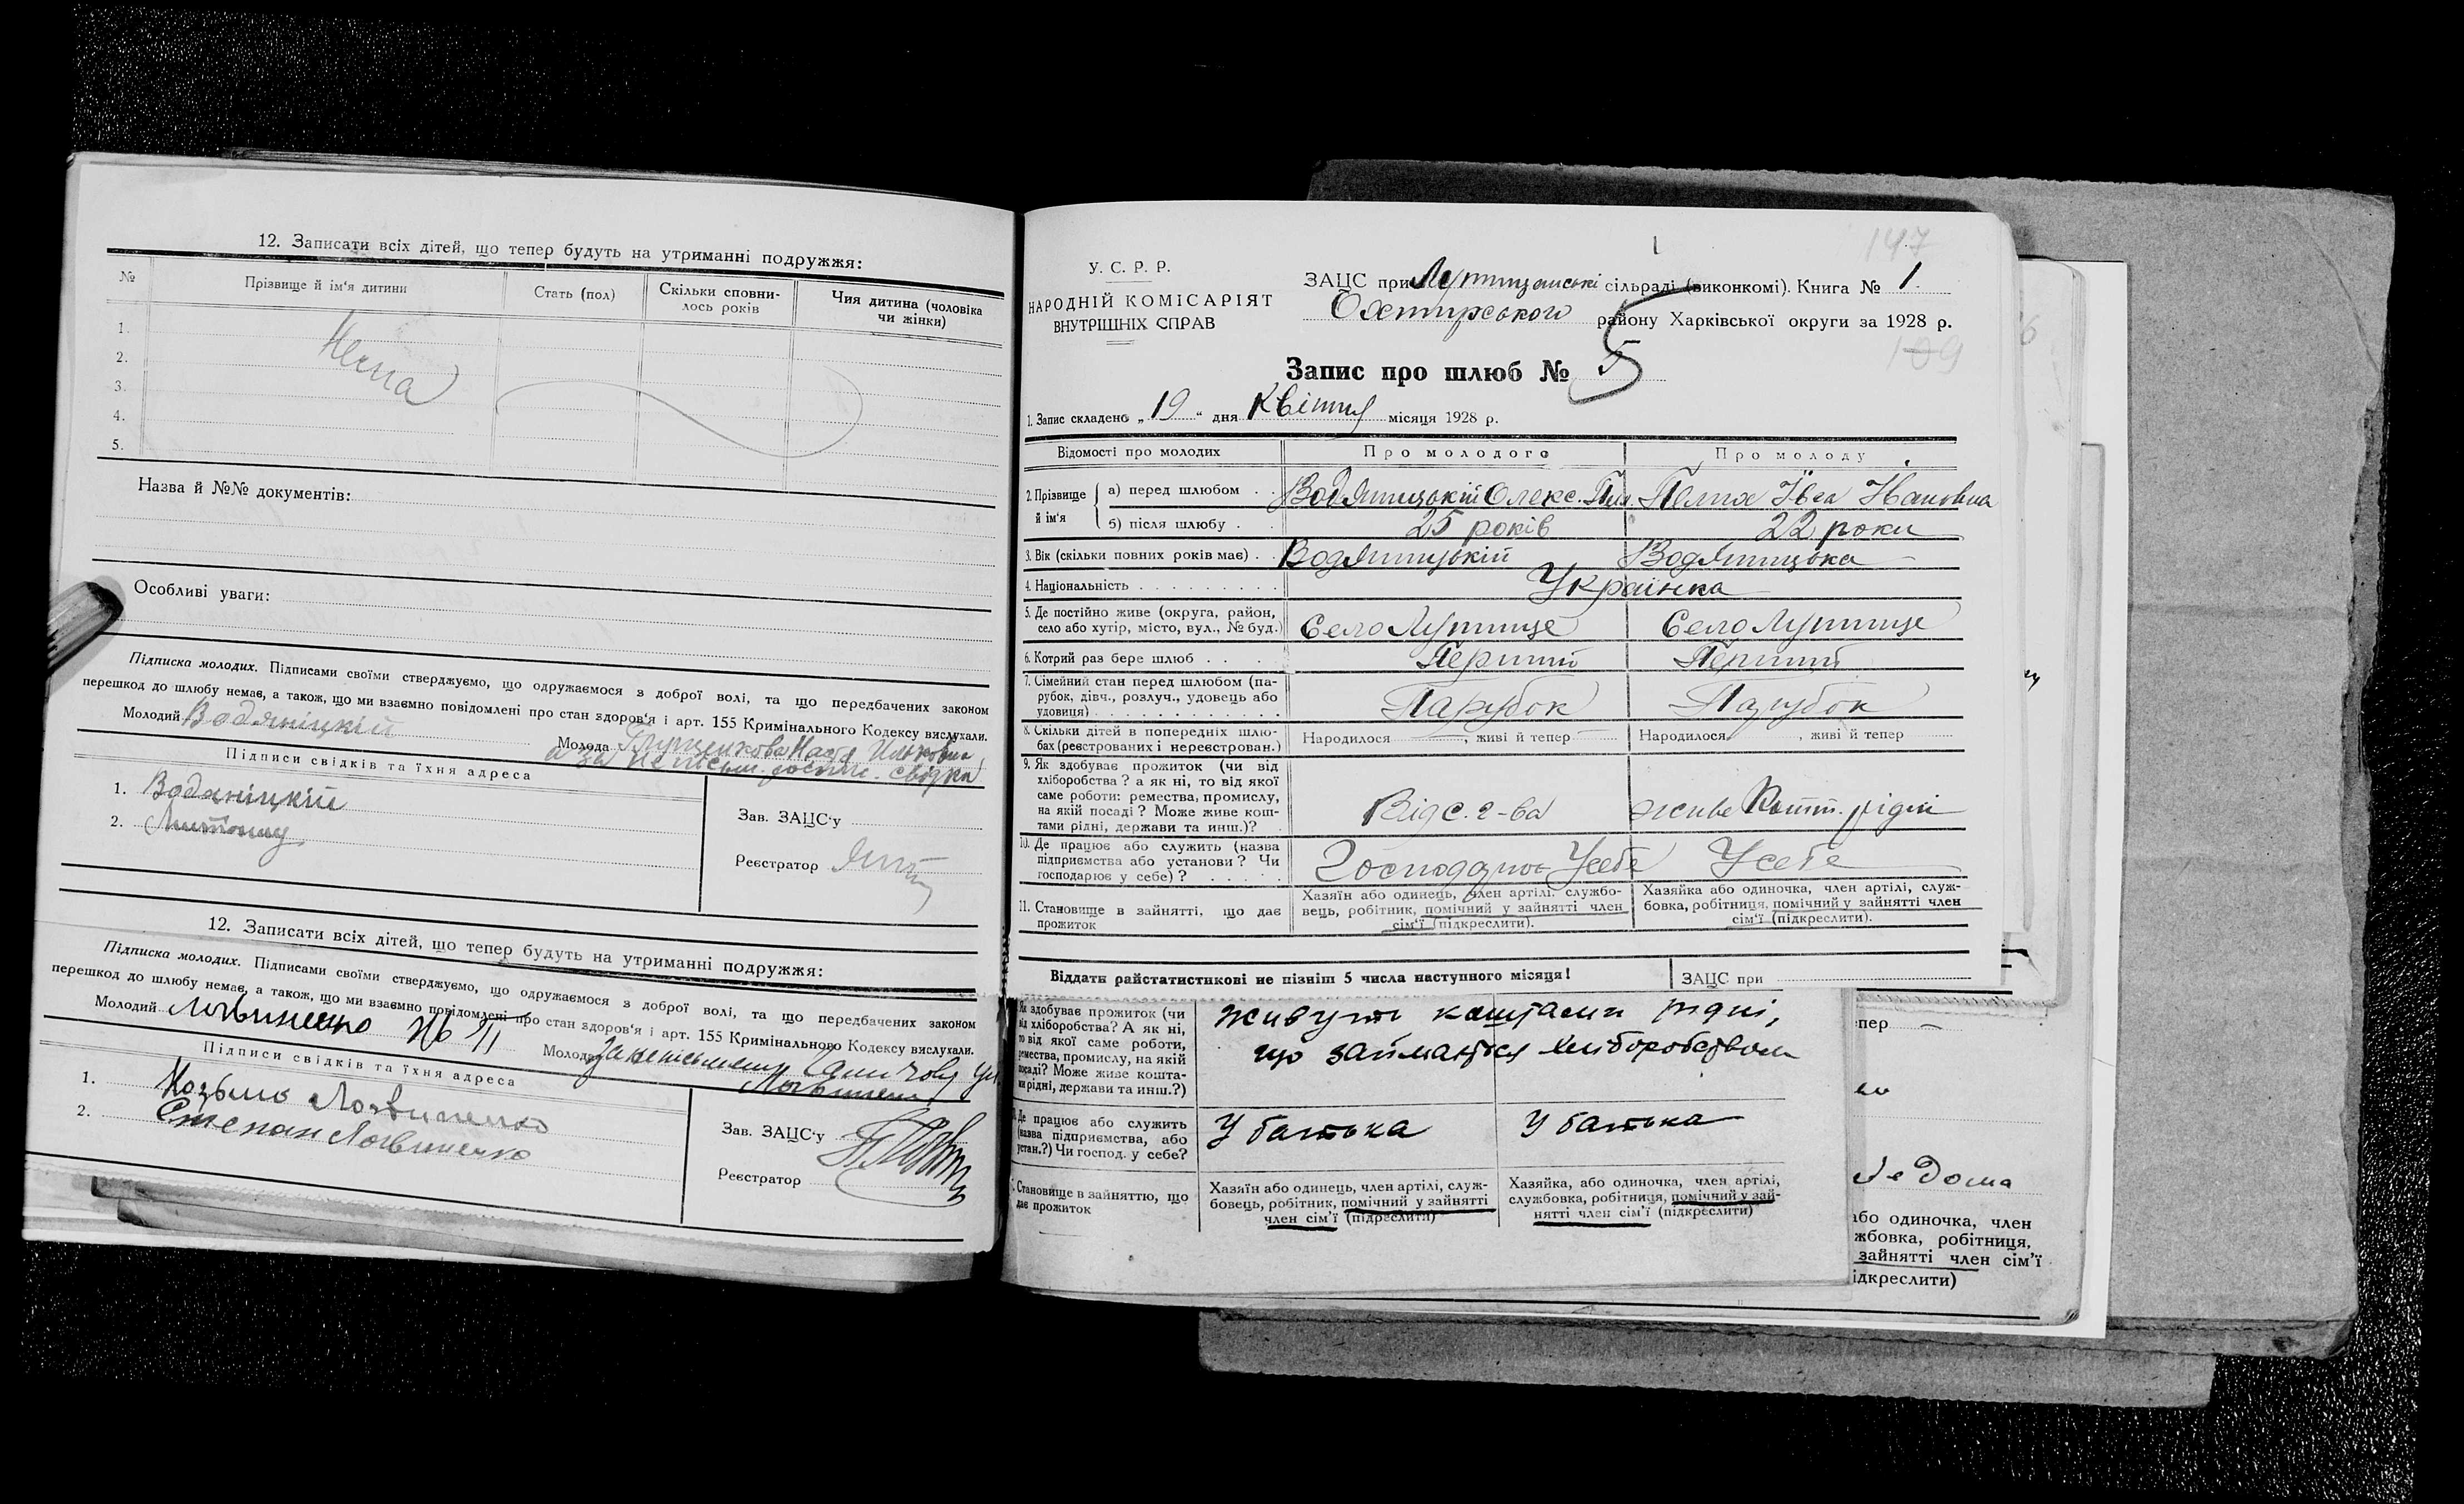 12. Записати всіх дітей, що тепер будуть на утриманні подружжя:
№ Прізвище й ім'я дитини Стать (пол) Скільки сповнилось років Чия дитина (чоловіка чи жінки)
1.
2.
3.
4.
5.
Нема
Назва й №№ документів:
Особливі уваги:
Підписка молодих. Підписами своїми стверджуємо, що одружаємося з доброї волі, та що передбачених законом
перешкод до шлюбу немає, а також, що ми взаємно повідомлені про стан здоров'я і арт. 155 Кримінального Кодексу вислухали.
Молодий Водяніцкій Молода
а за
Підписи свідків та їхня адреса
1. Водяніцкій
2.
Зав. ЗАЦС'у
Реєстратор
12. Записати всіх дітей, що тепер будуть на утриманні подружжя:
Підписка молодих. Підписами своїми стверджуємо, що одружаємося з доброї волі, та що передбачених законом
перешкод до шлюбу немає, а також, що ми взаємно повідомлені про стан здоров'я і арт. 155 Кримінального Кодексу вислухали.
Молодий Молода
Підписи свідків та їхня адреса
1. Козьма Логвиненко
2. Степан Логвиненко
Зав. ЗАЦС'у
Реєстратор
1
147
У. С. Р. Р.
НАРОДНІЙ КОМІСАРІЯТ
ВНУТРІШНІХ СПРАВ
ЗАЦС при Лутищанські сільраді (виконкомі). Книга № 1.
Охтирського району Харківської округи за 1928 р.
109
Запис про шлюб № 5
1. Запис складено „19“ дня Квітня місяця 1928 р.
Відомості про молодих Про молодого Про молоду
2. Прізвище й ім'я
а) перед шлюбом Водяницький Олекс. Івановна
б) після шлюбу 25 років 22 роки
3. Вік (скільки повних років має) Водяницький Водяницька
4. Національність Українка
5. Де постійно живе (округа, район,
село або хутір, місто, вул., № буд.) Село Лутище Село Лутище
6. Котрий раз бере шлюб Перший Перший
7. Сімейний стан перед шлюбом (парубок,
дівч., розлуч., удовець або
удовиця) Парубок Парубок
8. Скільки дітей в попередніх шлюбах
(реєстрованих і нереєстрован.) Народилося , живі й тепер Народилося , живі й тепер
9. Як здобуває прожиток (чи від
хліборобства? а як ні, то від якої
саме роботи: ремества, промислу,
на якій посаді? Може живе коштами
рідні, держави та инш.)? Від с. г-ва живе Кошт. рідні
10. Де працює або служить (назва
підприємства або установи? Чи
господарює у себе)? Господарює Усебе Усебе
11. Становище в зайнятті, що дає
прожиток
Хазяїн або одинець, член артілі, службовець,
робітник, помічний у зайнятті член
сім'ї (підкреслити).
Хазяйка або одиночка, член артілі, службовка,
робітниця, помічний у зайнятті член
сім'ї (підкреслити).
Віддати райстатистикові не пізніш 5 числа наступного місяця! ЗАЦС при
Як здобуває прожиток (чи
від хліборобства? А як ні,
то від якої саме роботи,
ремества, промислу, на якій
посаді? Може живе коштами
рідні, держави та инш.?)
живуть коштами рідні,
що займається хліборобством
Де працює або служить
(назва підприємства, або
устан.?) Чи господ. у себе?
У батька У батька
Становище в зайняттю, що
дає прожиток
Хазяїн або одинець, член артілі, службовець,
робітник, помічний у зайнятті
член сім'ї (підреслити)
Хазяйка, або одиночка, член артілі,
службовка, робітниця, помічний у зайнятті
член сім'ї (підкреслити)
пер
дома
або одиночка, член
жбовка, робітниця,
зайнятті член сім'ї
ідкреслити)